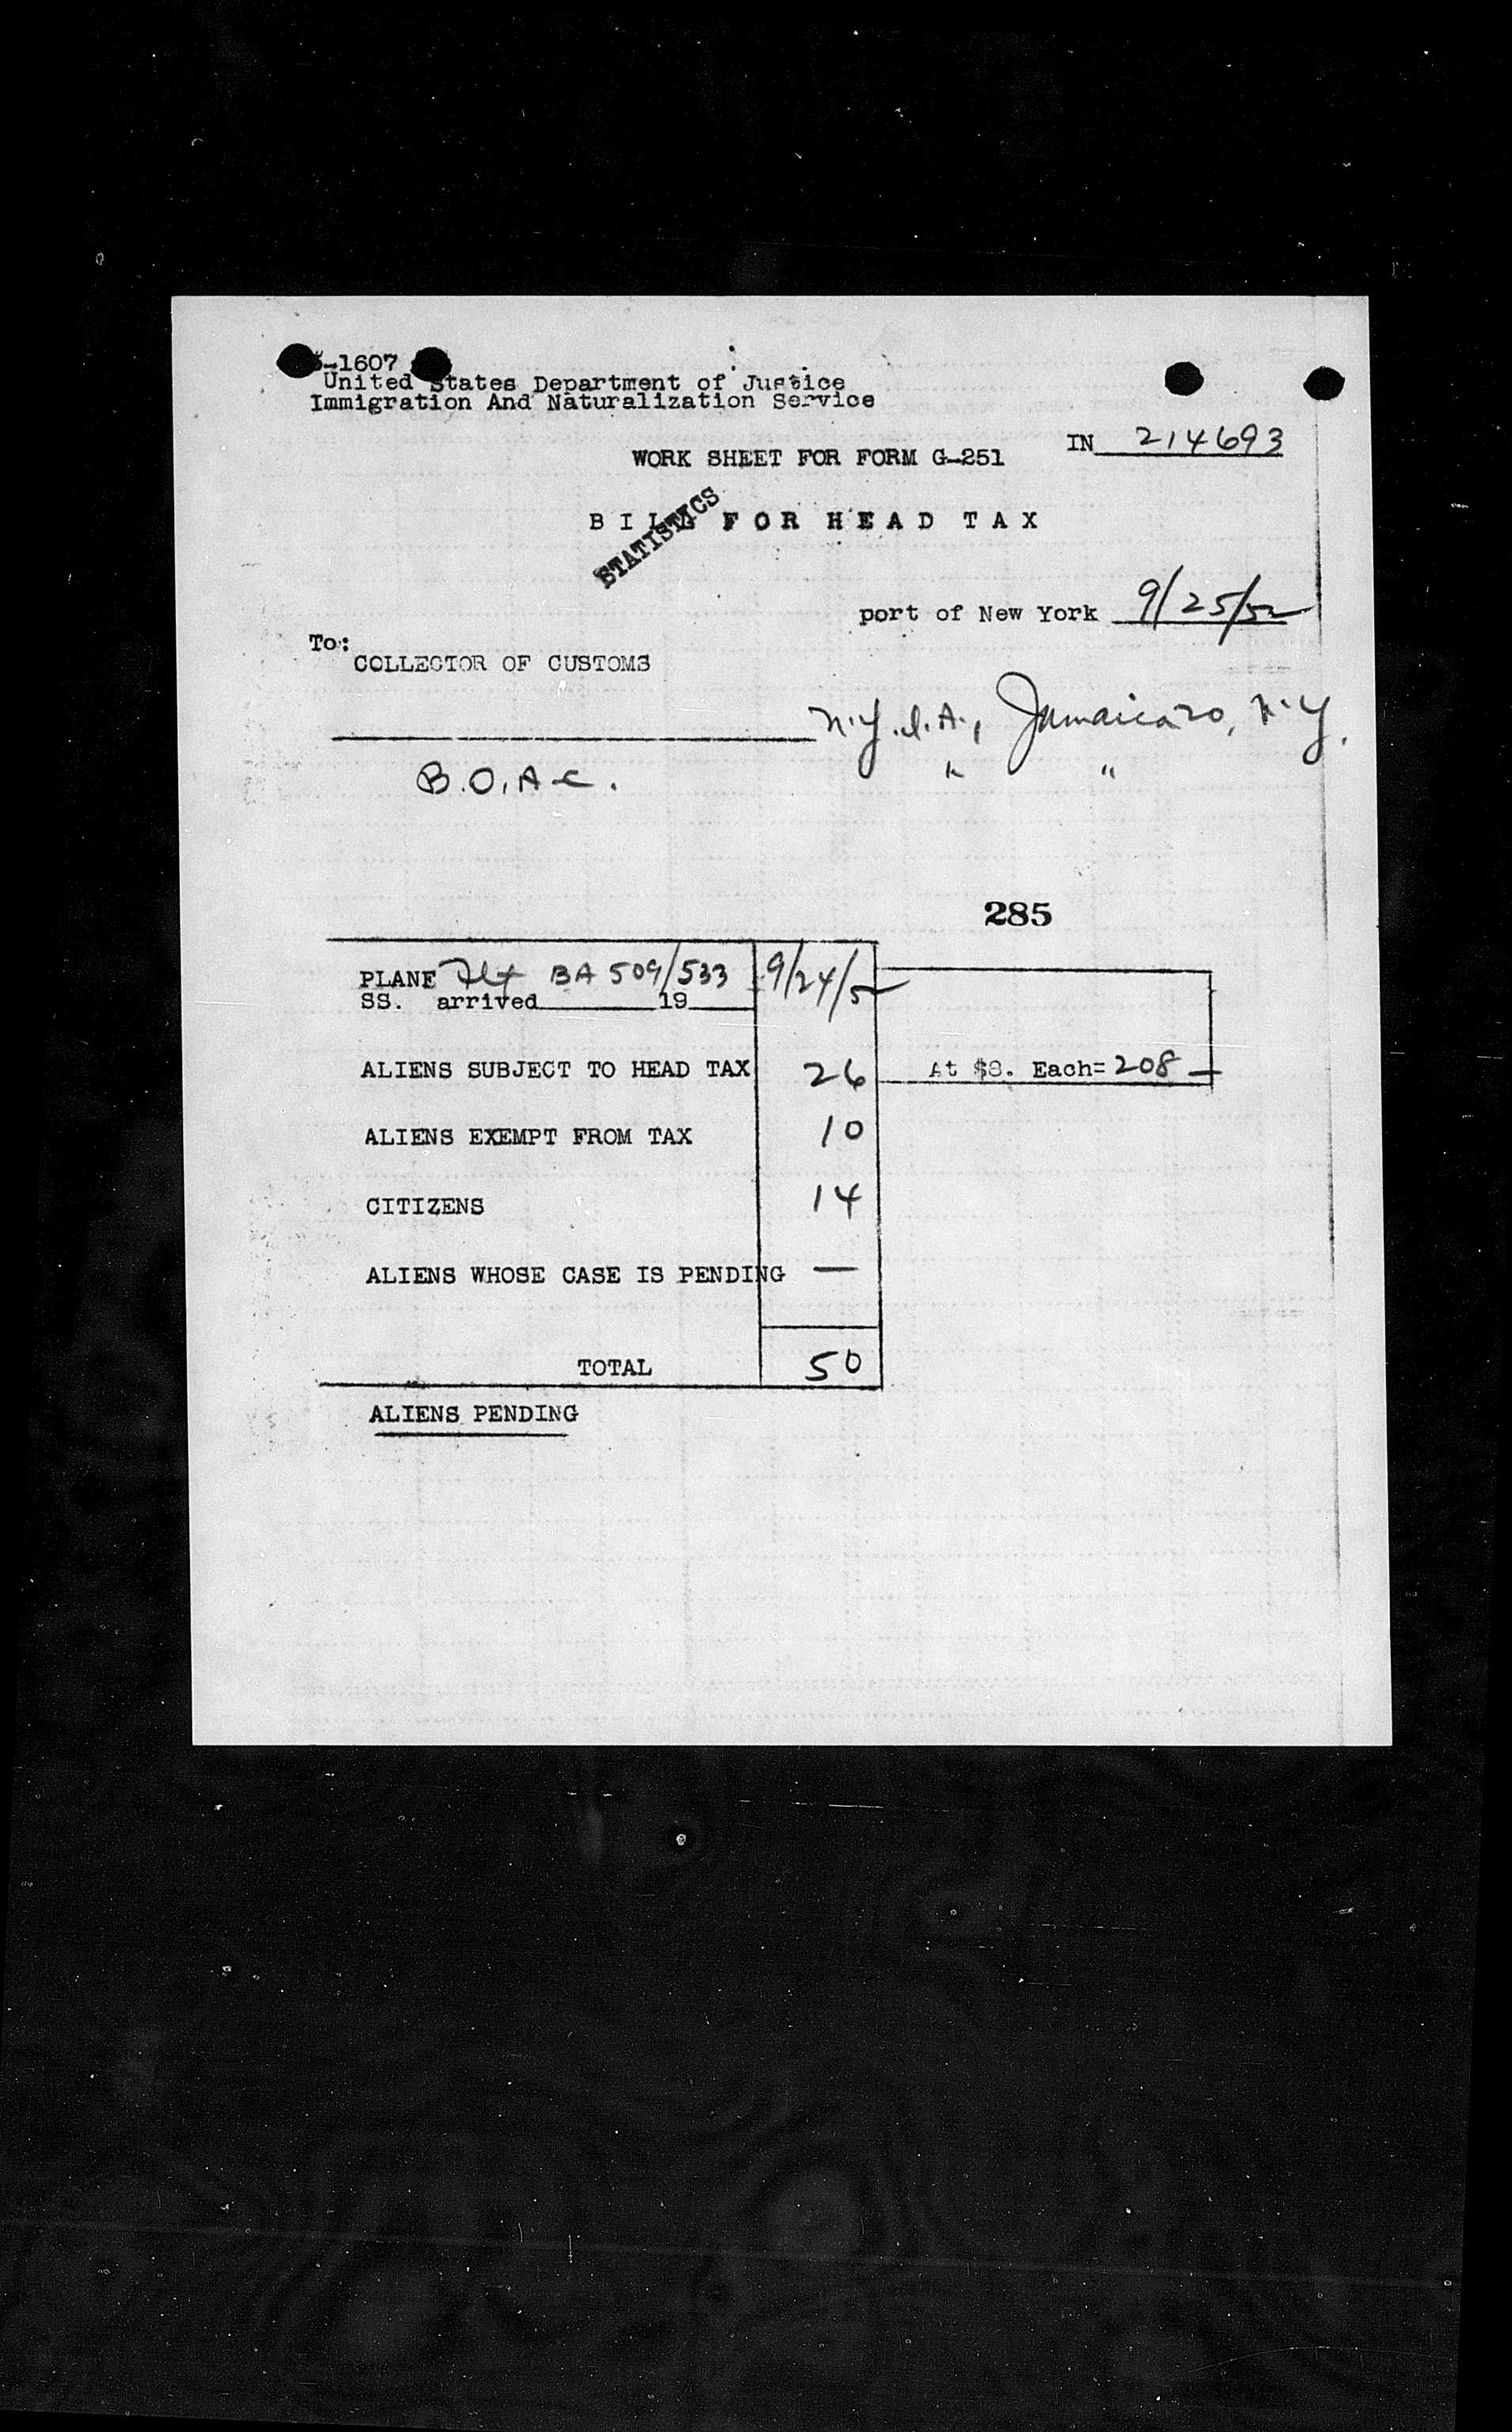 -1607
United States Department of Justice
Immigration And Naturalization Service
IN 214693
WORK SHEET FOR FORM G-251
BILL FOR HEAD TAX
STATISTICS
port of New York 9/25/52
To:
COLLECTOR OF CUSTOMS
N.Y.I.A., Jamaica 30, N.Y.
B.O.A.C. " "
285
PLANE Flt BA 509/533 9/24/52
SS. arrived 19
ALIENS SUBJECT TO HEAD TAX 26 At $8. Each= 208 —
ALIENS EXEMPT FROM TAX 10
CITIZENS 14
ALIENS WHOSE CASE IS PENDING —
TOTAL 50
ALIENS PENDING